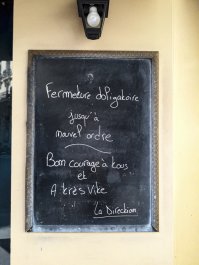 Fermeture obligatoire
jusqu'à
nouvel ordre
Bon courage à tous
et
A très Vite
La Direction